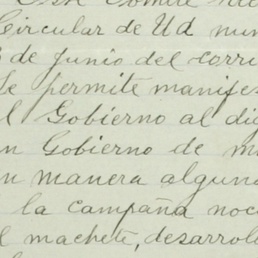 Este Comité
Circular de Ud nu
de Junio del corri
se permite manifes
l Gobierno al di
n Gobierno de m
n manera alguna
la campaña noc
l machete, desarrol